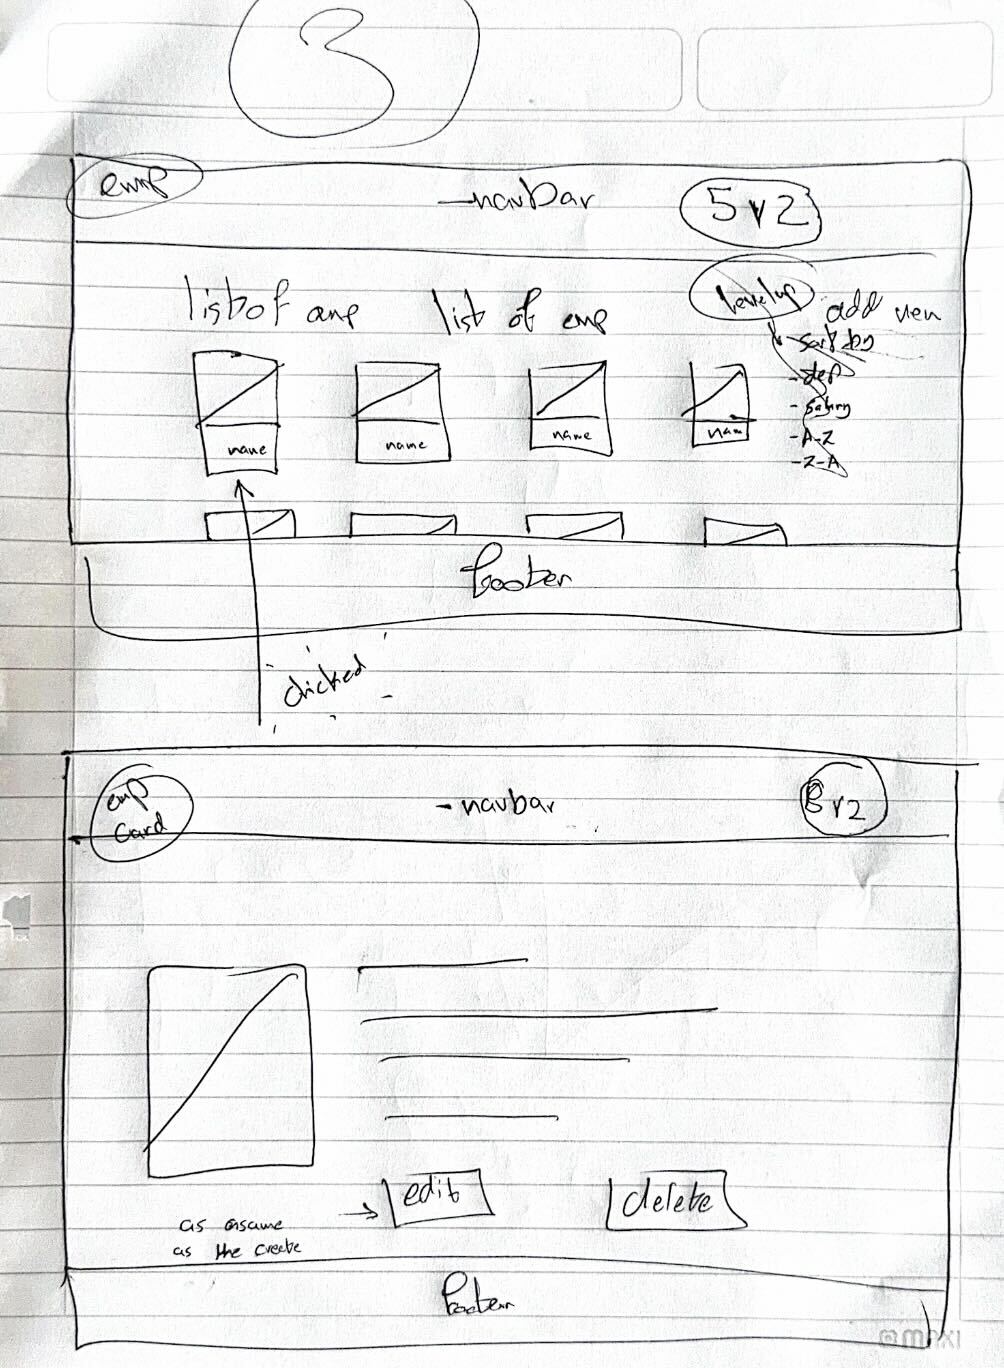 3
emp
-navbar
5 v 2
list of emp
list of emp
Levelup
add new
- sort by
- dep
- salary
- A-Z
- Z-A
name
name
name
nam
footer
clicked
emp
Card
-navbar
v2
edit
delete
as
as the create
footer
MAXI